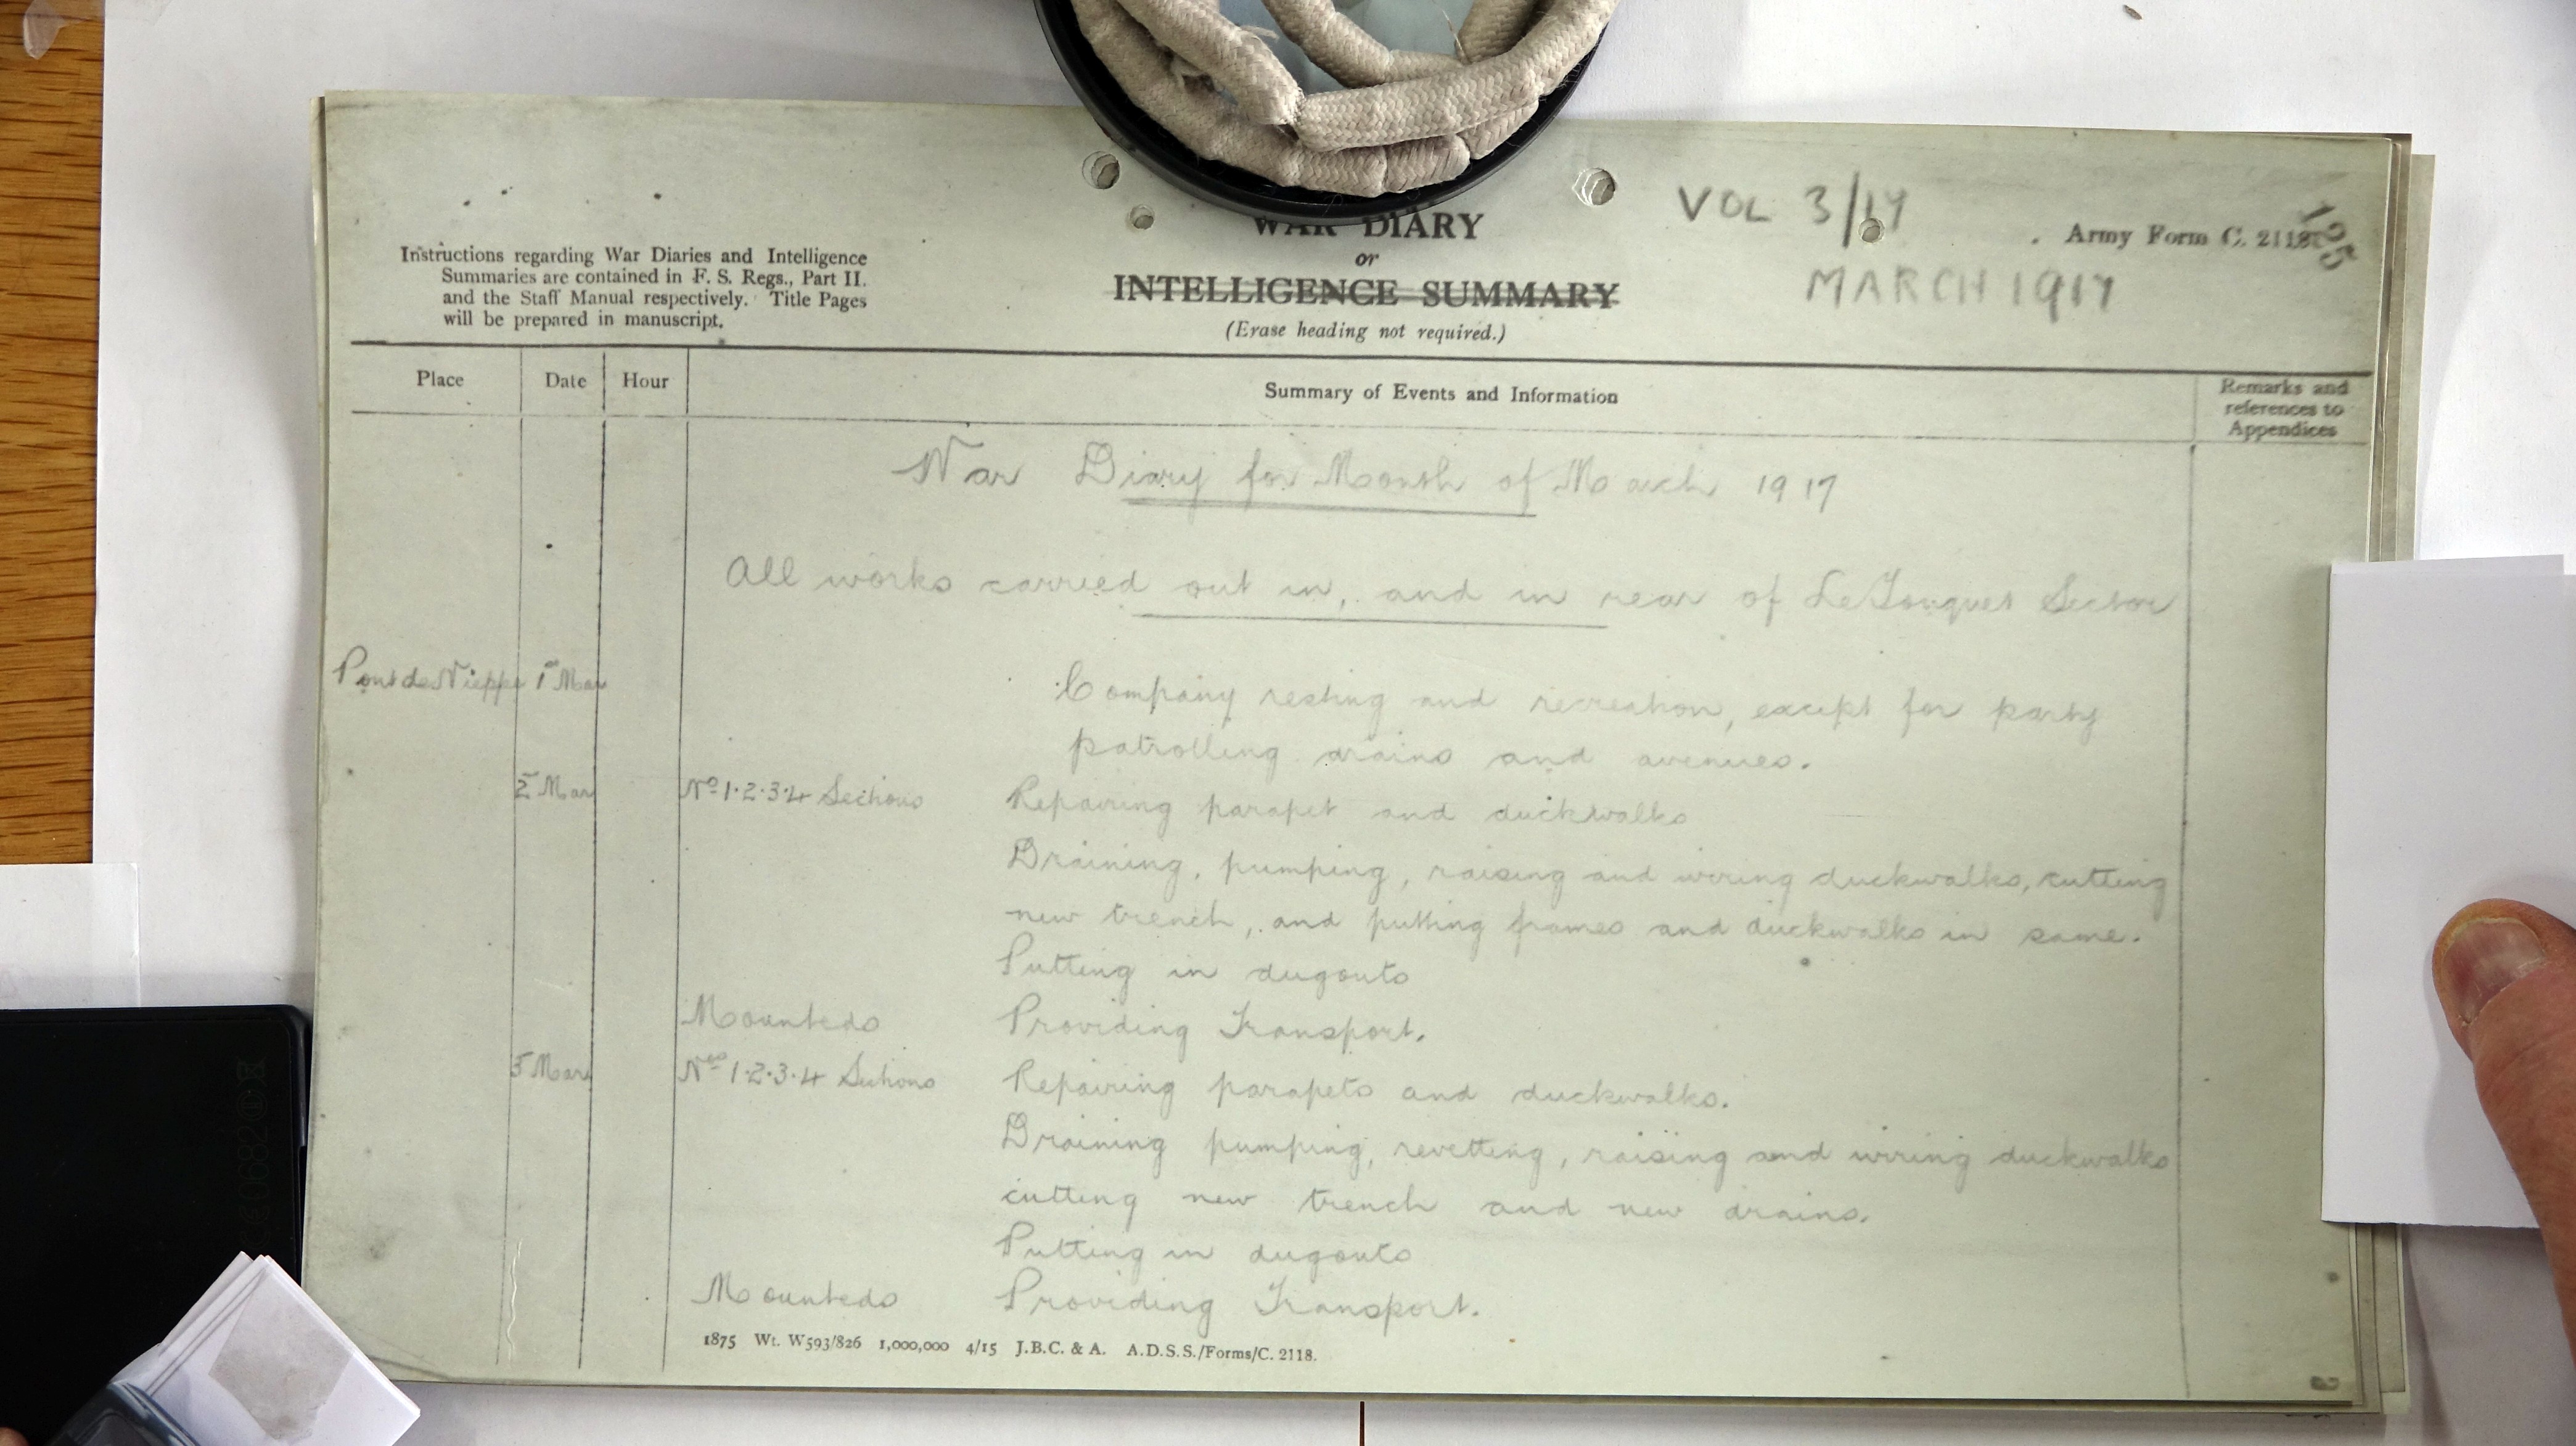 VOL 3/17
125
Army Form C. 2118
MARCH 1917
Instructions regarding War Diaries and Intelligence
Summaries are contained in F. S. Regs., Part II.
and the Staff Manual respectively. Title Pages
will be prepared in manuscript.
WAR DIARY
or
INTELLIGENCE SUMMARY
(Erase heading not required.)
Place Date Hour Summary of Events and Information Remarks and
references to
Appendices
War Diary for Month of March 1917
All works carried out in, and in rear of Le Touquet Sector
Pont de Nieppe 1st Mar Company resting and recreation, except for party
patrolling drains and avenues.
2 Mar No 1.2.3.4 Sections Repairing parapet and duckwalks
Draining, pumping, raising and wiring duckwalks, cutting
new trench, and putting frames and duckwalks in same.
Putting in dugouts
Mounteds Providing Transport.
Mar Nos 1.2.3.4 Sections Repairing parapets and duckwalks.
Draining pumping, revetting, raising and wiring duckwalks
cutting new trench and new drains.
Putting in dugouts
Mounteds Providing Transport.
1875 Wt. W593/826 1,000,000 4/15 J.B.C. & A. A.D.S.S./Forms/C. 2118.